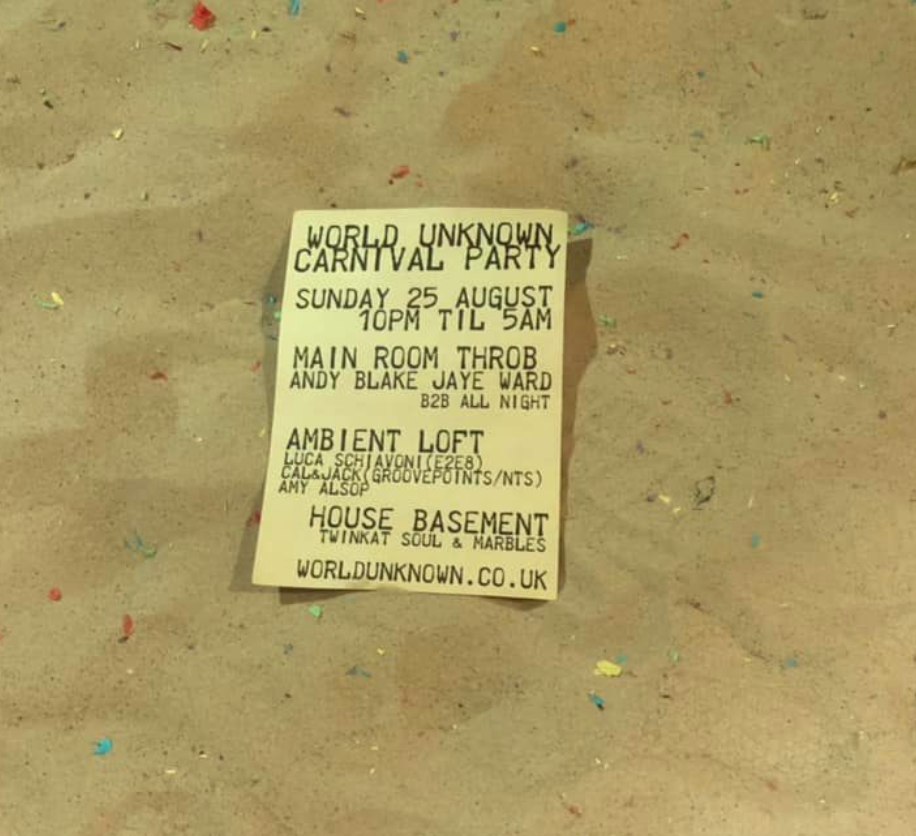 WORLD UNKNOWN
CARNIVAL PARTY
SUNDAY 25 AUGUST
10PM TIL 5AM
MAIN ROOM THROB
ANDY BLAKE JAYE WARD
B2B ALL NIGHT
AMBIENT LOFT
LUCA SCHIAVONI(E2E8)
CAL&JACK(GROOVEPOINTS/NTS)
AMY ALSOP
HOUSE BASEMENT
TWINKAT SOUL & MARBLES
WORLDUNKNOWN.CO.UK